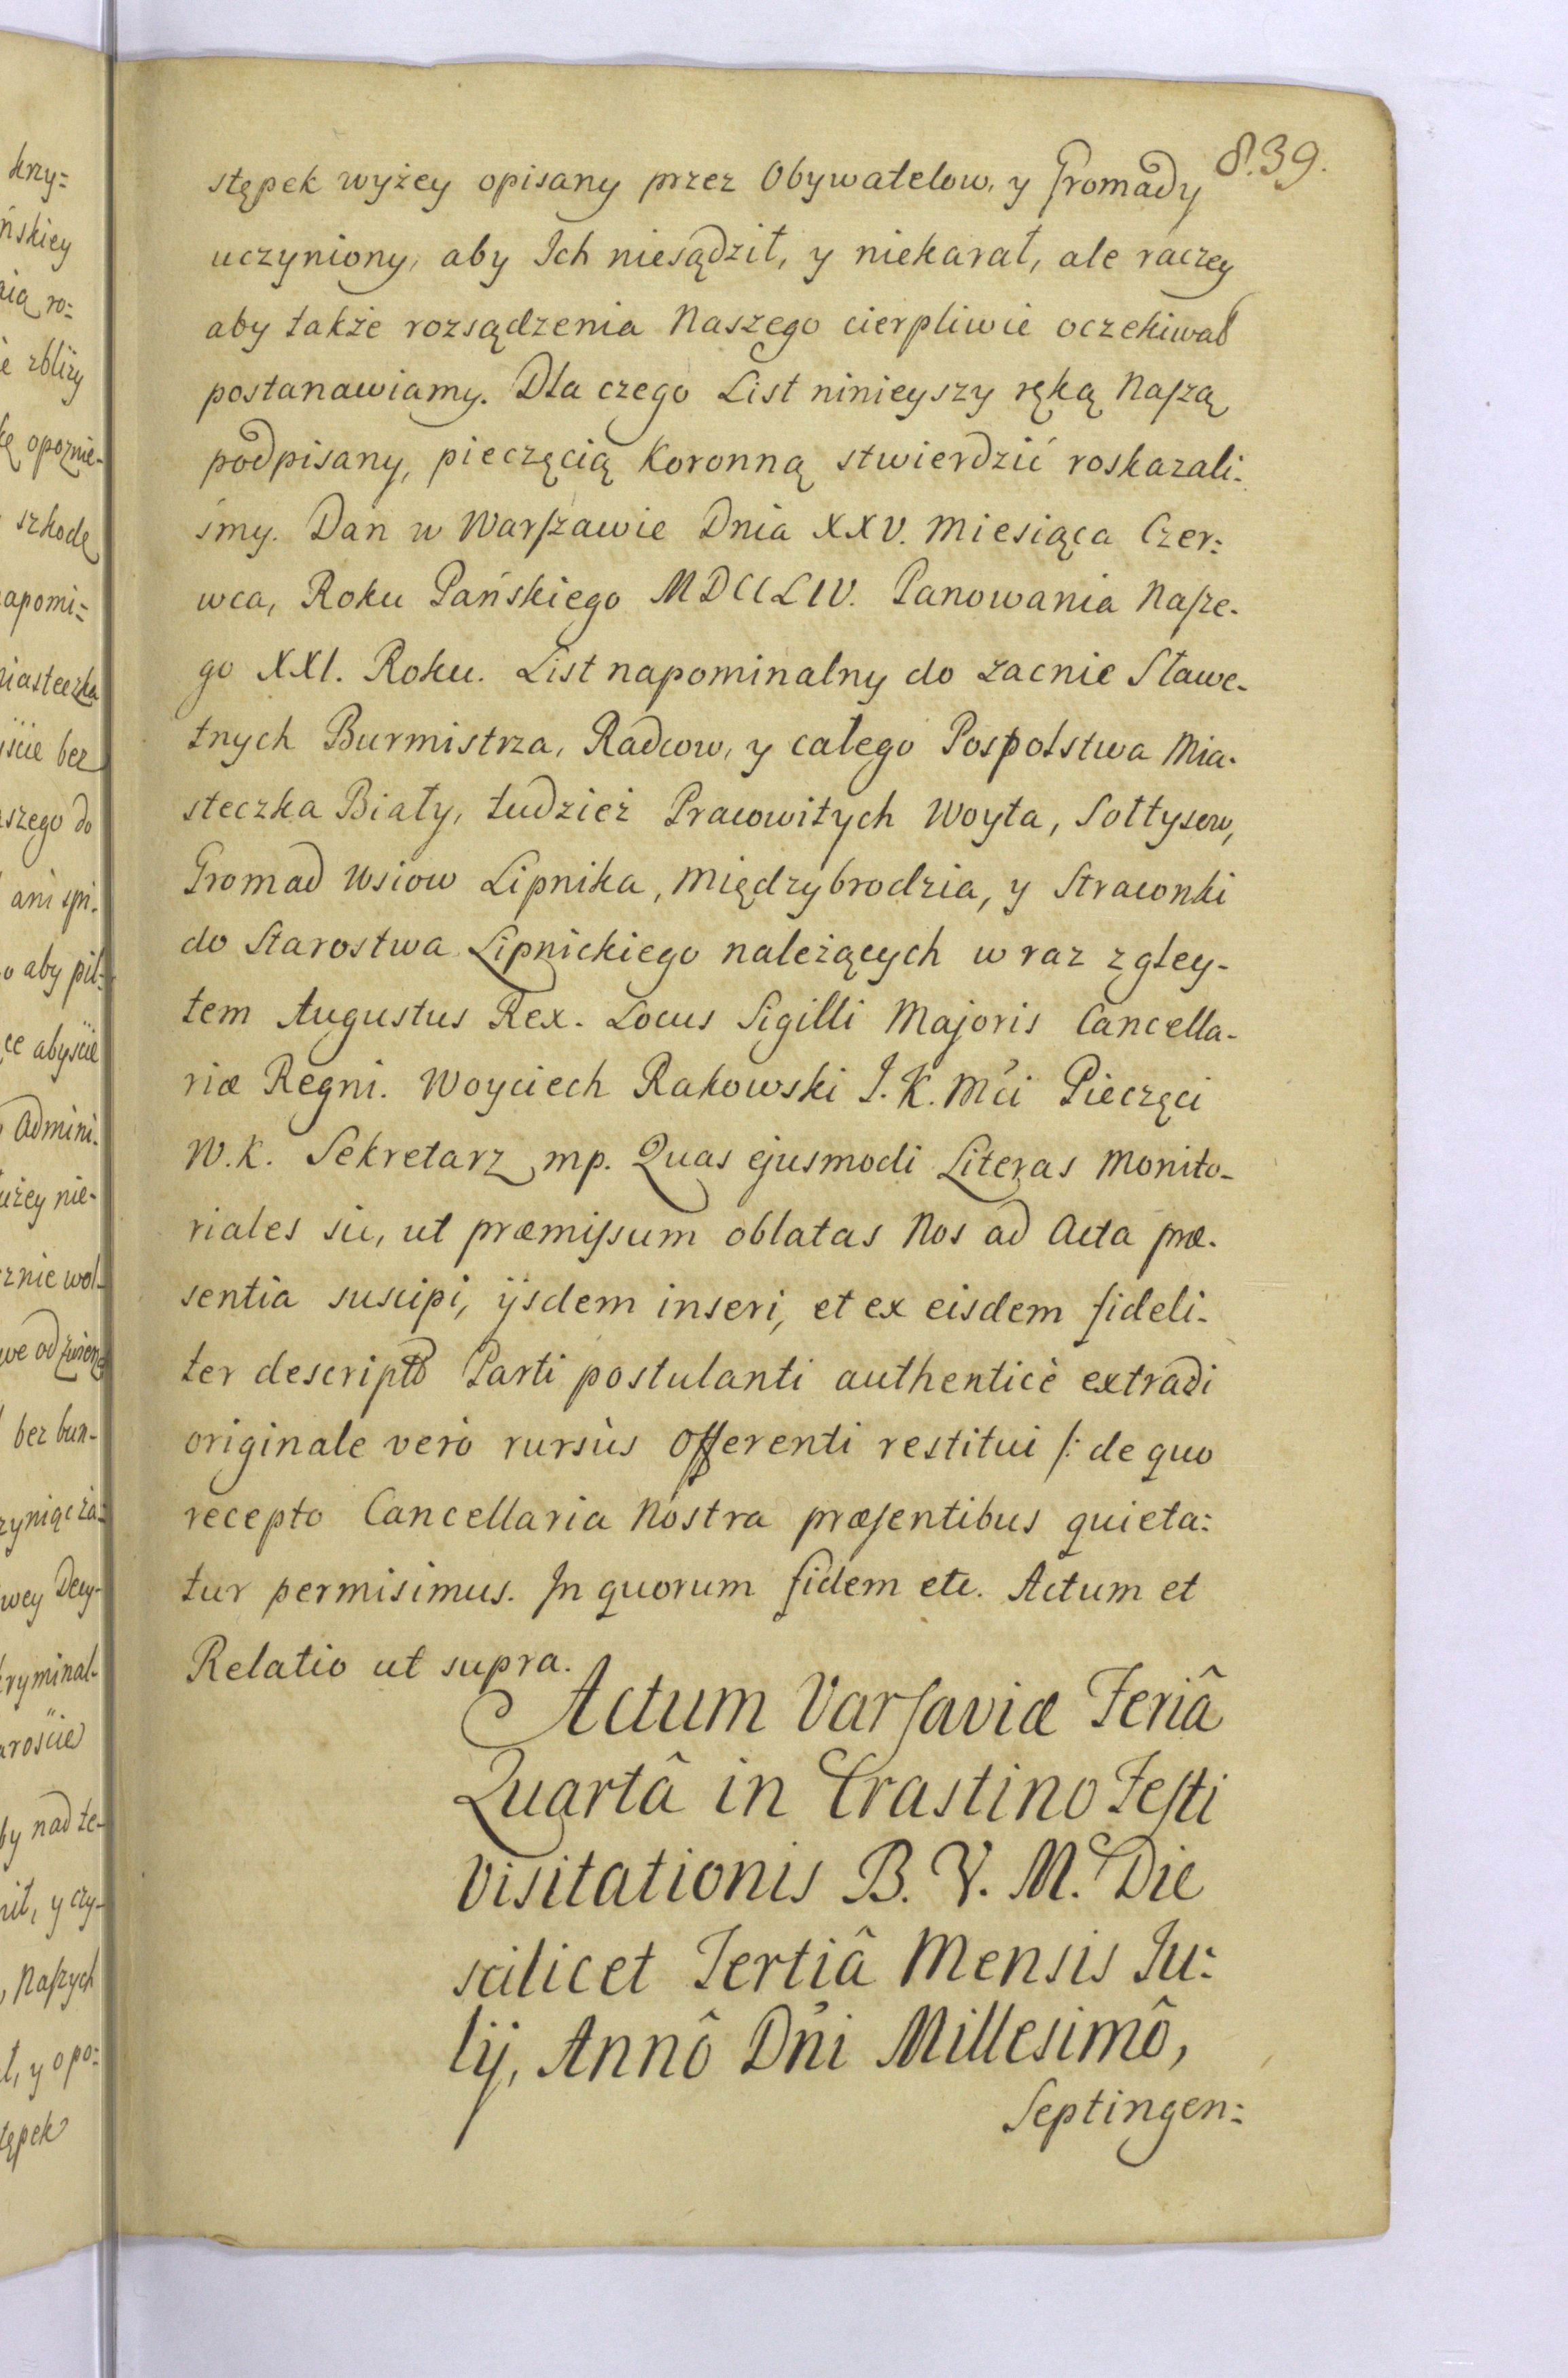 839.
stępek wyżey opisany przez Obywatelow, y Gromady
uczyniony, aby Ich niesądził, y niekarał, ale raczey
aby także rozsądzenia Naszego cierpliwie oczekiwał
postanawiamy. Dla czego List ninieyszy ręką Naszą
podpisany, pieczęcią Koronną stwierdzić roskazali:
śmy. Dan w Warszawie Dnia XXV. Miesiąca Czer:
wca, Roku Pańskiego MDCCLIV. Panowania Nasze-
go XXI. Roku. List napominalny do zacnie Sławe-
tnych Burmistrza, Radcow, y całego Pospolstwa Mia-
steczka Biały, tudzież Pracowitych Woyta, Sołtysow,
Gromad Wsiow Lipnika, Międzybrodzia, y Straconki
do Starostwa Lipnickiego należących w raz z gley-
tem Augustus Rex. Locus Sigilli Majoris Cancella-
riæ Regni. Woyciech Rakowski J. K. Mci Pieczęci
W. K. Sekretarz mp. Quas ejusmodi Literas Monito-
riales sic, ut præmissum oblatas Nos ad Acta præ-
sentia suscipi, ijsdem inseri, et ex eisdem fideli-
ter descripto Parti postulanti authenticè extradi
originale verò rursùs Offerenti restitui /: de quo
recepto Cancellaria Nostra præsentibus quieta:
tur permisimus. In quorum fidem etc. Actum et
Relatio ut supra.
Actum Varsaviæ Feriâ
Quartâ in Crastino Festi
Visitationis B. V. M. Die
scilicet Tertiâ Mensis Ju:
lij, Annô Dni Millesimô,
Septingen:
krzy:
ńskiey
ro:
zbliży
opoznie-
szkodę
apomi:
iasteczka
ście bez
szego do
ani spi-
o aby pil:
ce abyście
Admini-
użey nie-
znie wol-
bez bun-
wey Decy-
ryminal-
roście
by nad te-
ił, y czy-
Naszych
ł, y opo:
tępek